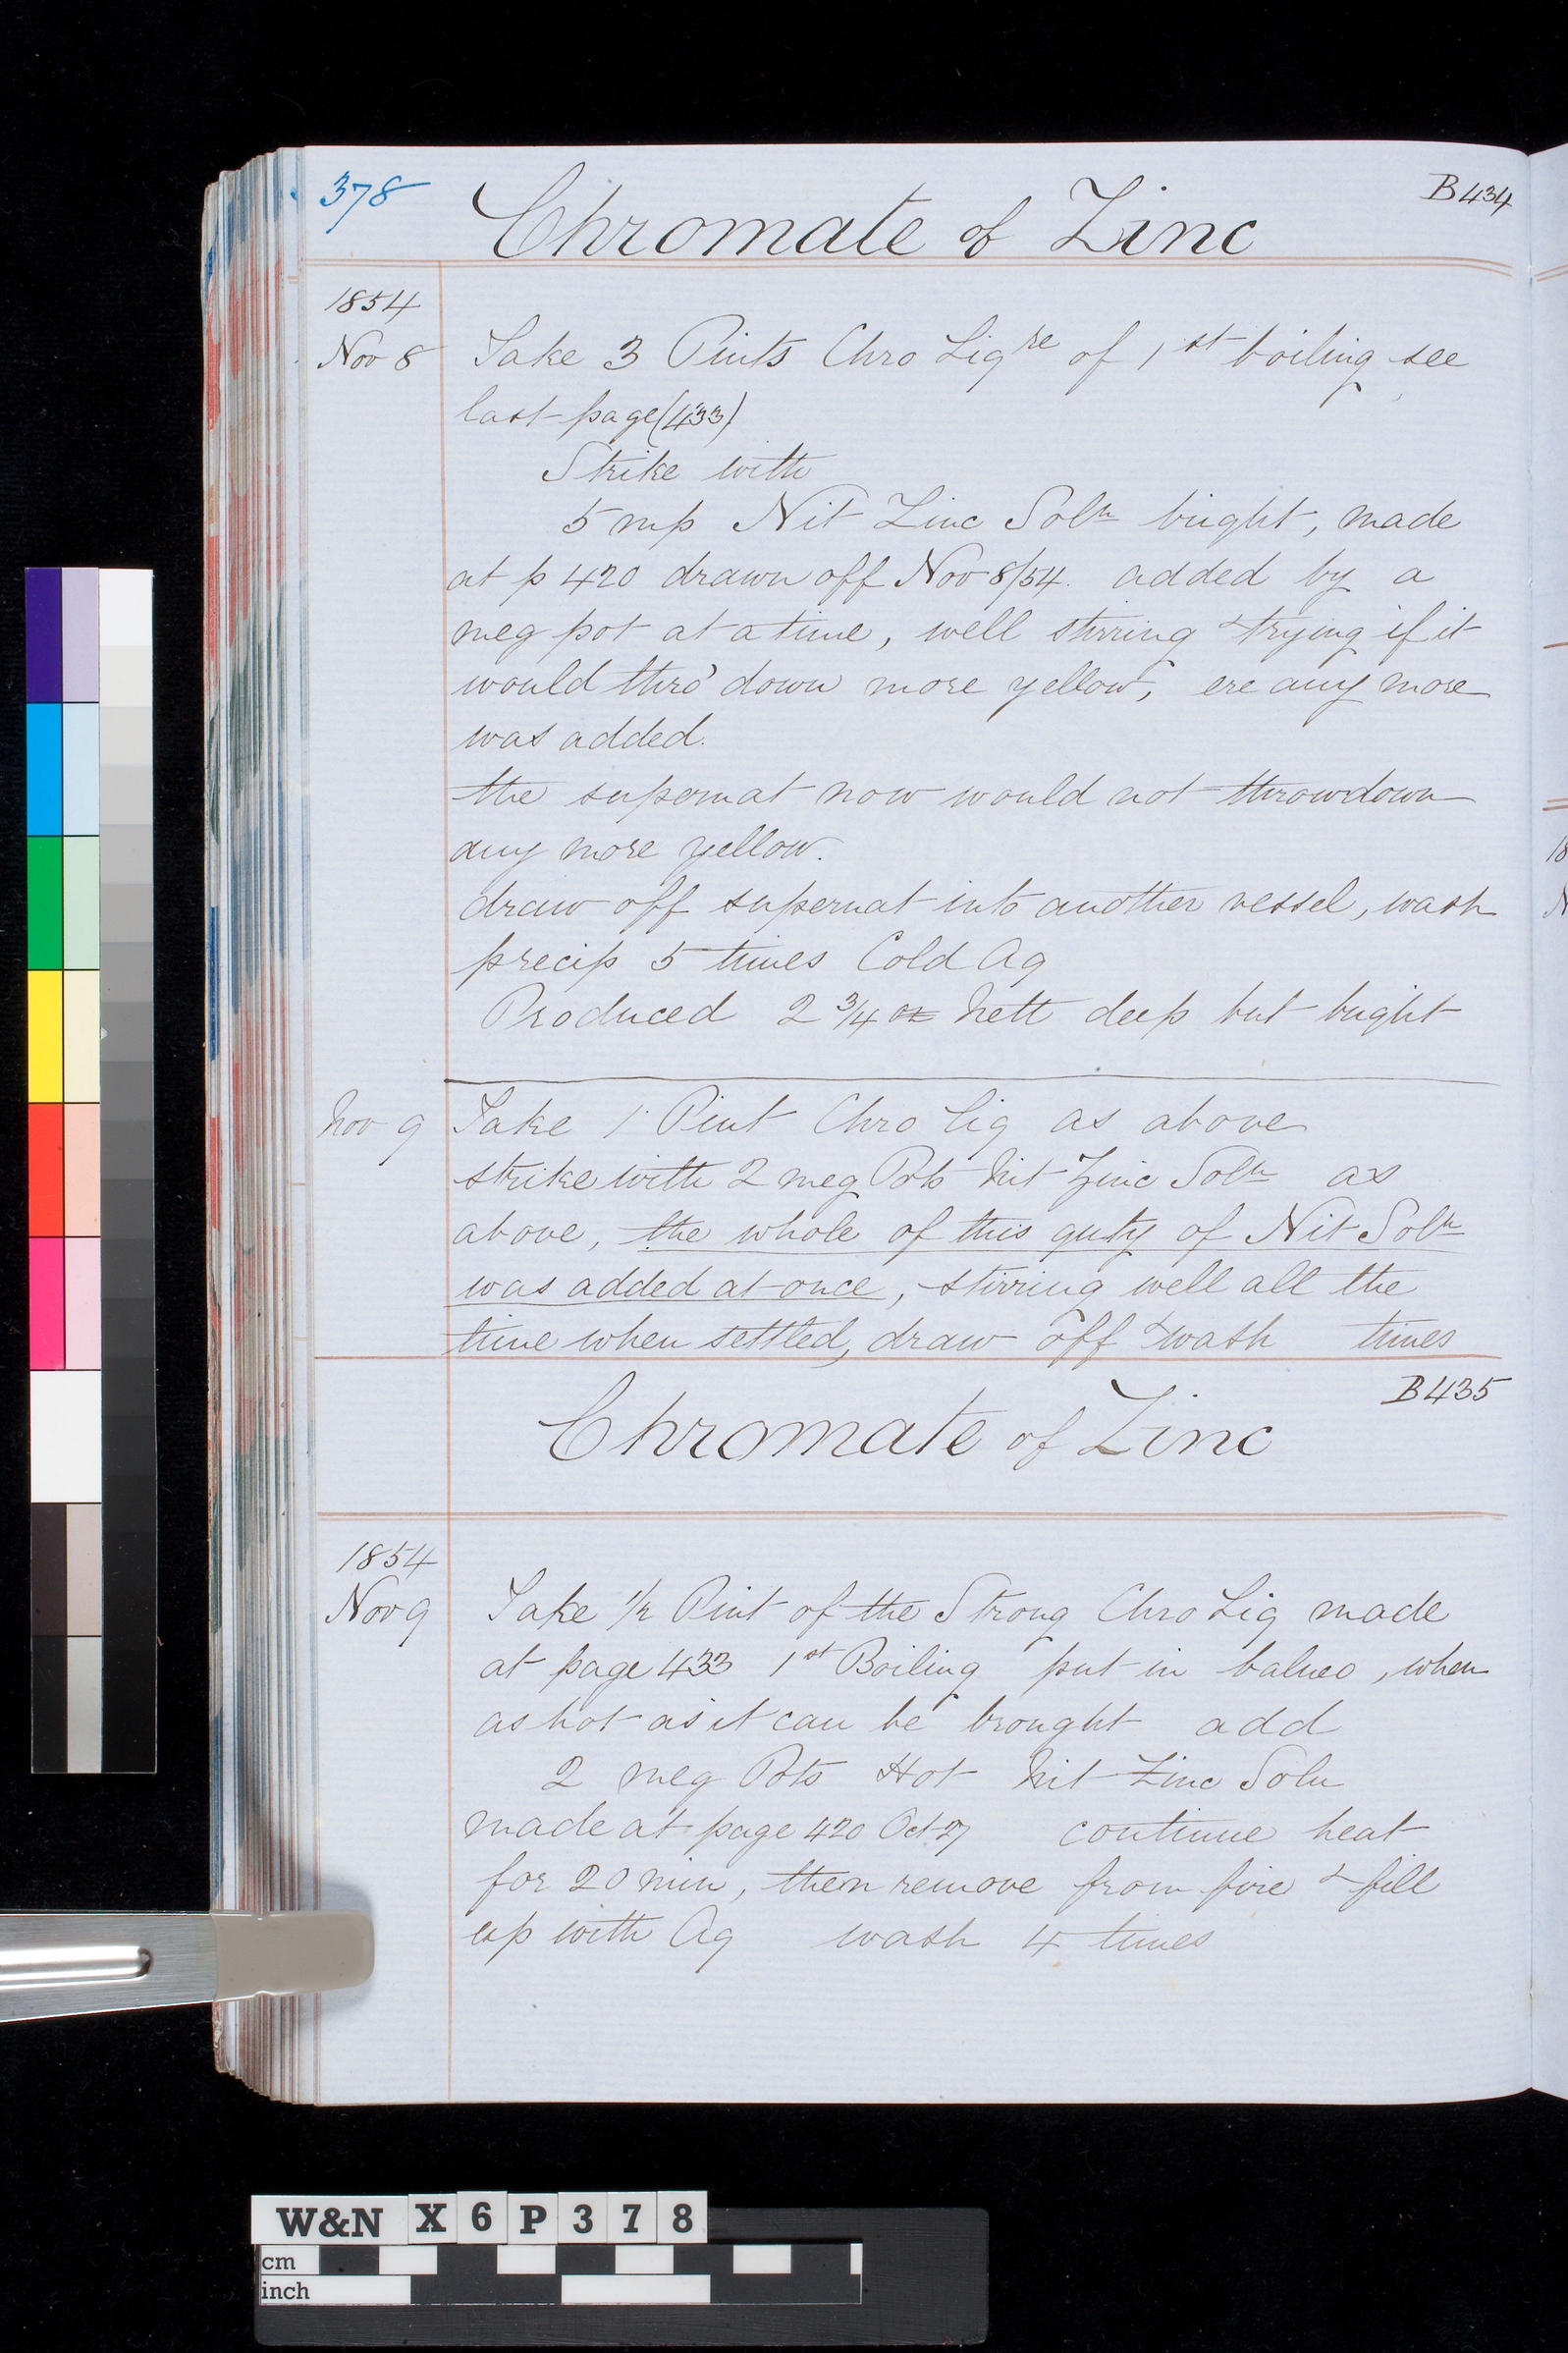 378
B434
Chromate of Zinc
1854
Nov 8 Take 3 Pints Chro Liqre of 1st boiling, see
last page (433)
Strike with
5 mp Nit Zinc Soln bright, made
at p 420 drawn off Nov 8/54. added by a
meg pot at a time, well stirring & trying if it
would thro' down more yellow, ere any more
was added.
the supernat now would not throw down
any more yellow.
draw off supernat into another vessel, wash
precip 5 times Cold Aq
Produced 2 3/4 oz Nett deep but bright
Nov 9 Take 1 Pint Chro Liq as above
strike with 2 meg Pots Nit Zinc Soln as
above, the whole of this quty of Nit Soln
was added at once, stirring well all the
time when settled, draw off & wash times
B435
Chromate of Zinc
1854
Nov 9 Take 1/2 Pint of the Strong Chro Liq made
at page 433 1st Boiling put in balneo, when
as hot as it can be brought add
2 meg Pots Hot Nit Zinc Soln
made at page 420 Oct 27 continue heat
for 20 min, then remove from fire & fill
up with Aq wash 4 times
W&N X6P378
cm
inch